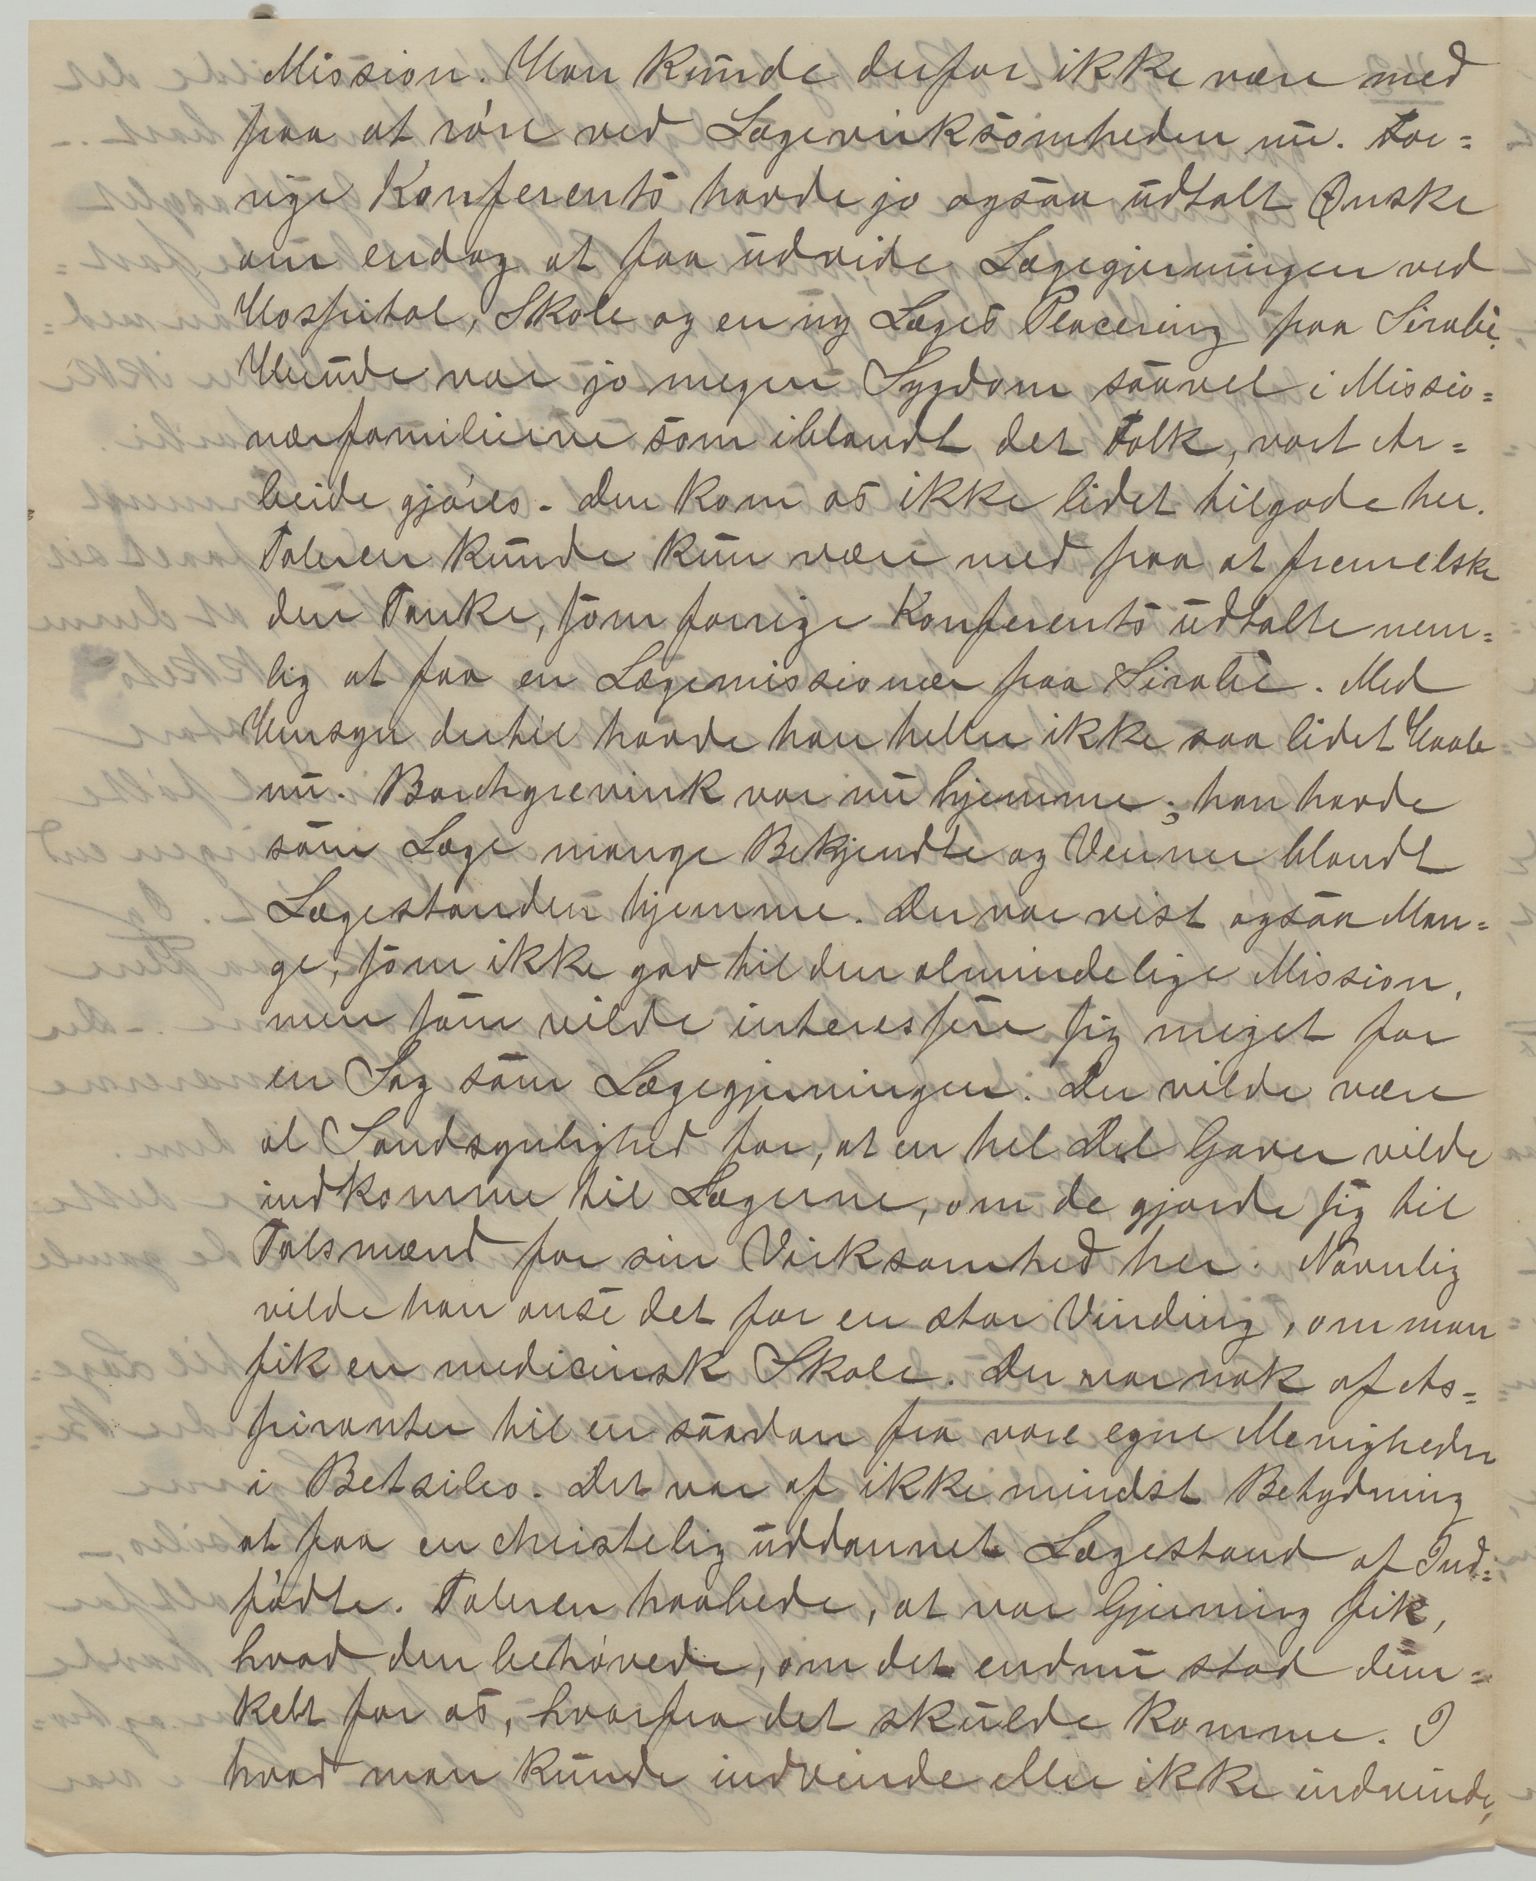 Mission. Han kunde derfor ikke være med
paa at røre ved Lægevirksomheden nu. For=
rige Konferents havde jo ogsaa udtalt Ønske
om endog at faa udvide Lægegjerningen ved
Hospital, Skole og en ny Læges Placering paa Sirabè.
Herude var jo megen Sygdom saavel i Missio=
nærfamilierne som iblandt det Folk, vort Ar=
beide gjøres. Den kom os ikke lidet tilgode her.
Taleren kunde kun være med paa at fremelske
den Tanke, som forrige Konferents udtalte nem=
lig at faa en Lægemissionær paa Sirabè. Med
Hensyn dertil havde han heller ikke saa lidet Haab
nu. Borchgrevink var nu hjemme; han havde
som Læge mange Bekjendte og Venner blandt
Lægestanden hjemme. Der var vist ogsaa Man=
ge, som ikke gav til den almindelige Mission,
men som vilde interessere sig meget for
en Sag som Lægegjerningen. Der vilde være
al Sandsynlighed for, at en hel Del Gaver vilde
indkomme til Lægerne, om de gjorde sig til
Talsmænd for sin Virksomhed her. Navnlig
vilde han anse det for en stor Vinding, om man
fik en medicinsk Skole. Der var nok af As=
piranter til en saadan fra vore egne Menigheder
i Betsileo. Det var af ikke mindst Betydning
at faa en christelig uddannet Lægestand af Ind=
fødte. Taleren haabede, at vor Gjerning fik,
hvad den behøvede, om det endnu stod dun=
kelt for os, hvorfra det skulde komme. I
hvad man kunde indvinde eller ikke indvinde,